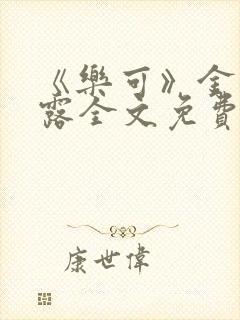 《樂可》金
露全文免費
康世偉